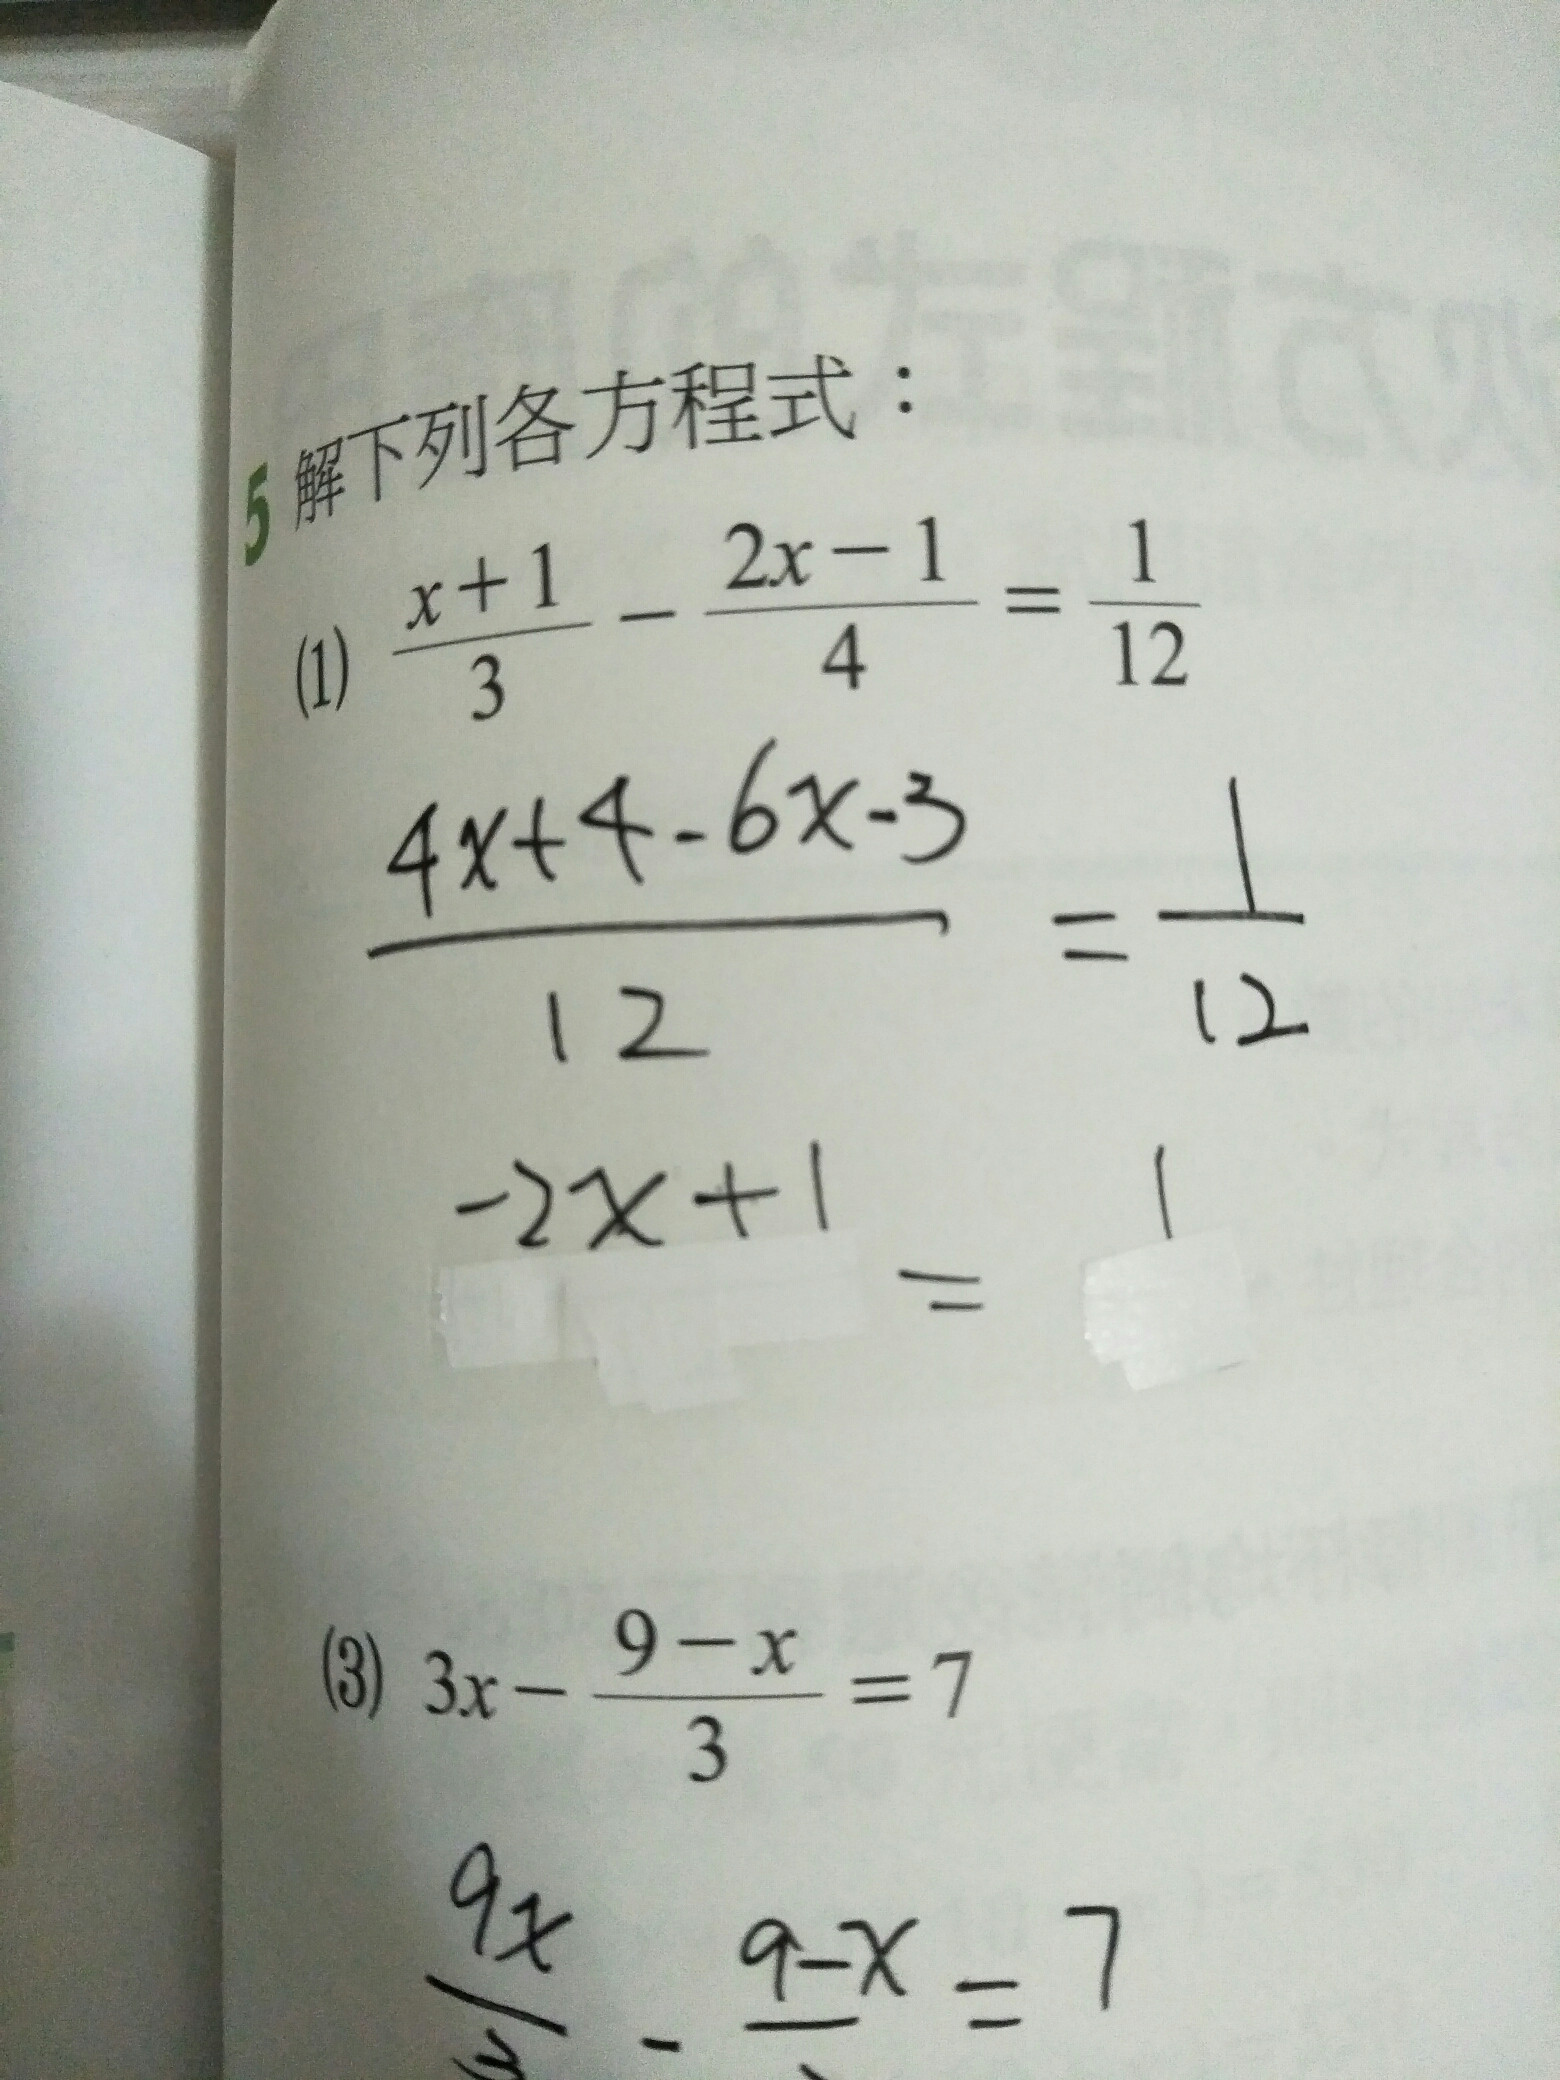 5 解下列各方程式：
(1) \frac{x+1}{3} - \frac{2x-1}{4} = \frac{1}{12}
\frac{4x+4-6x-3}{12} = \frac{1}{12}
-2x+1 = 1
(3) 3x - \frac{9-x}{3} = 7
\frac{9x}{3} - 9-x = 7